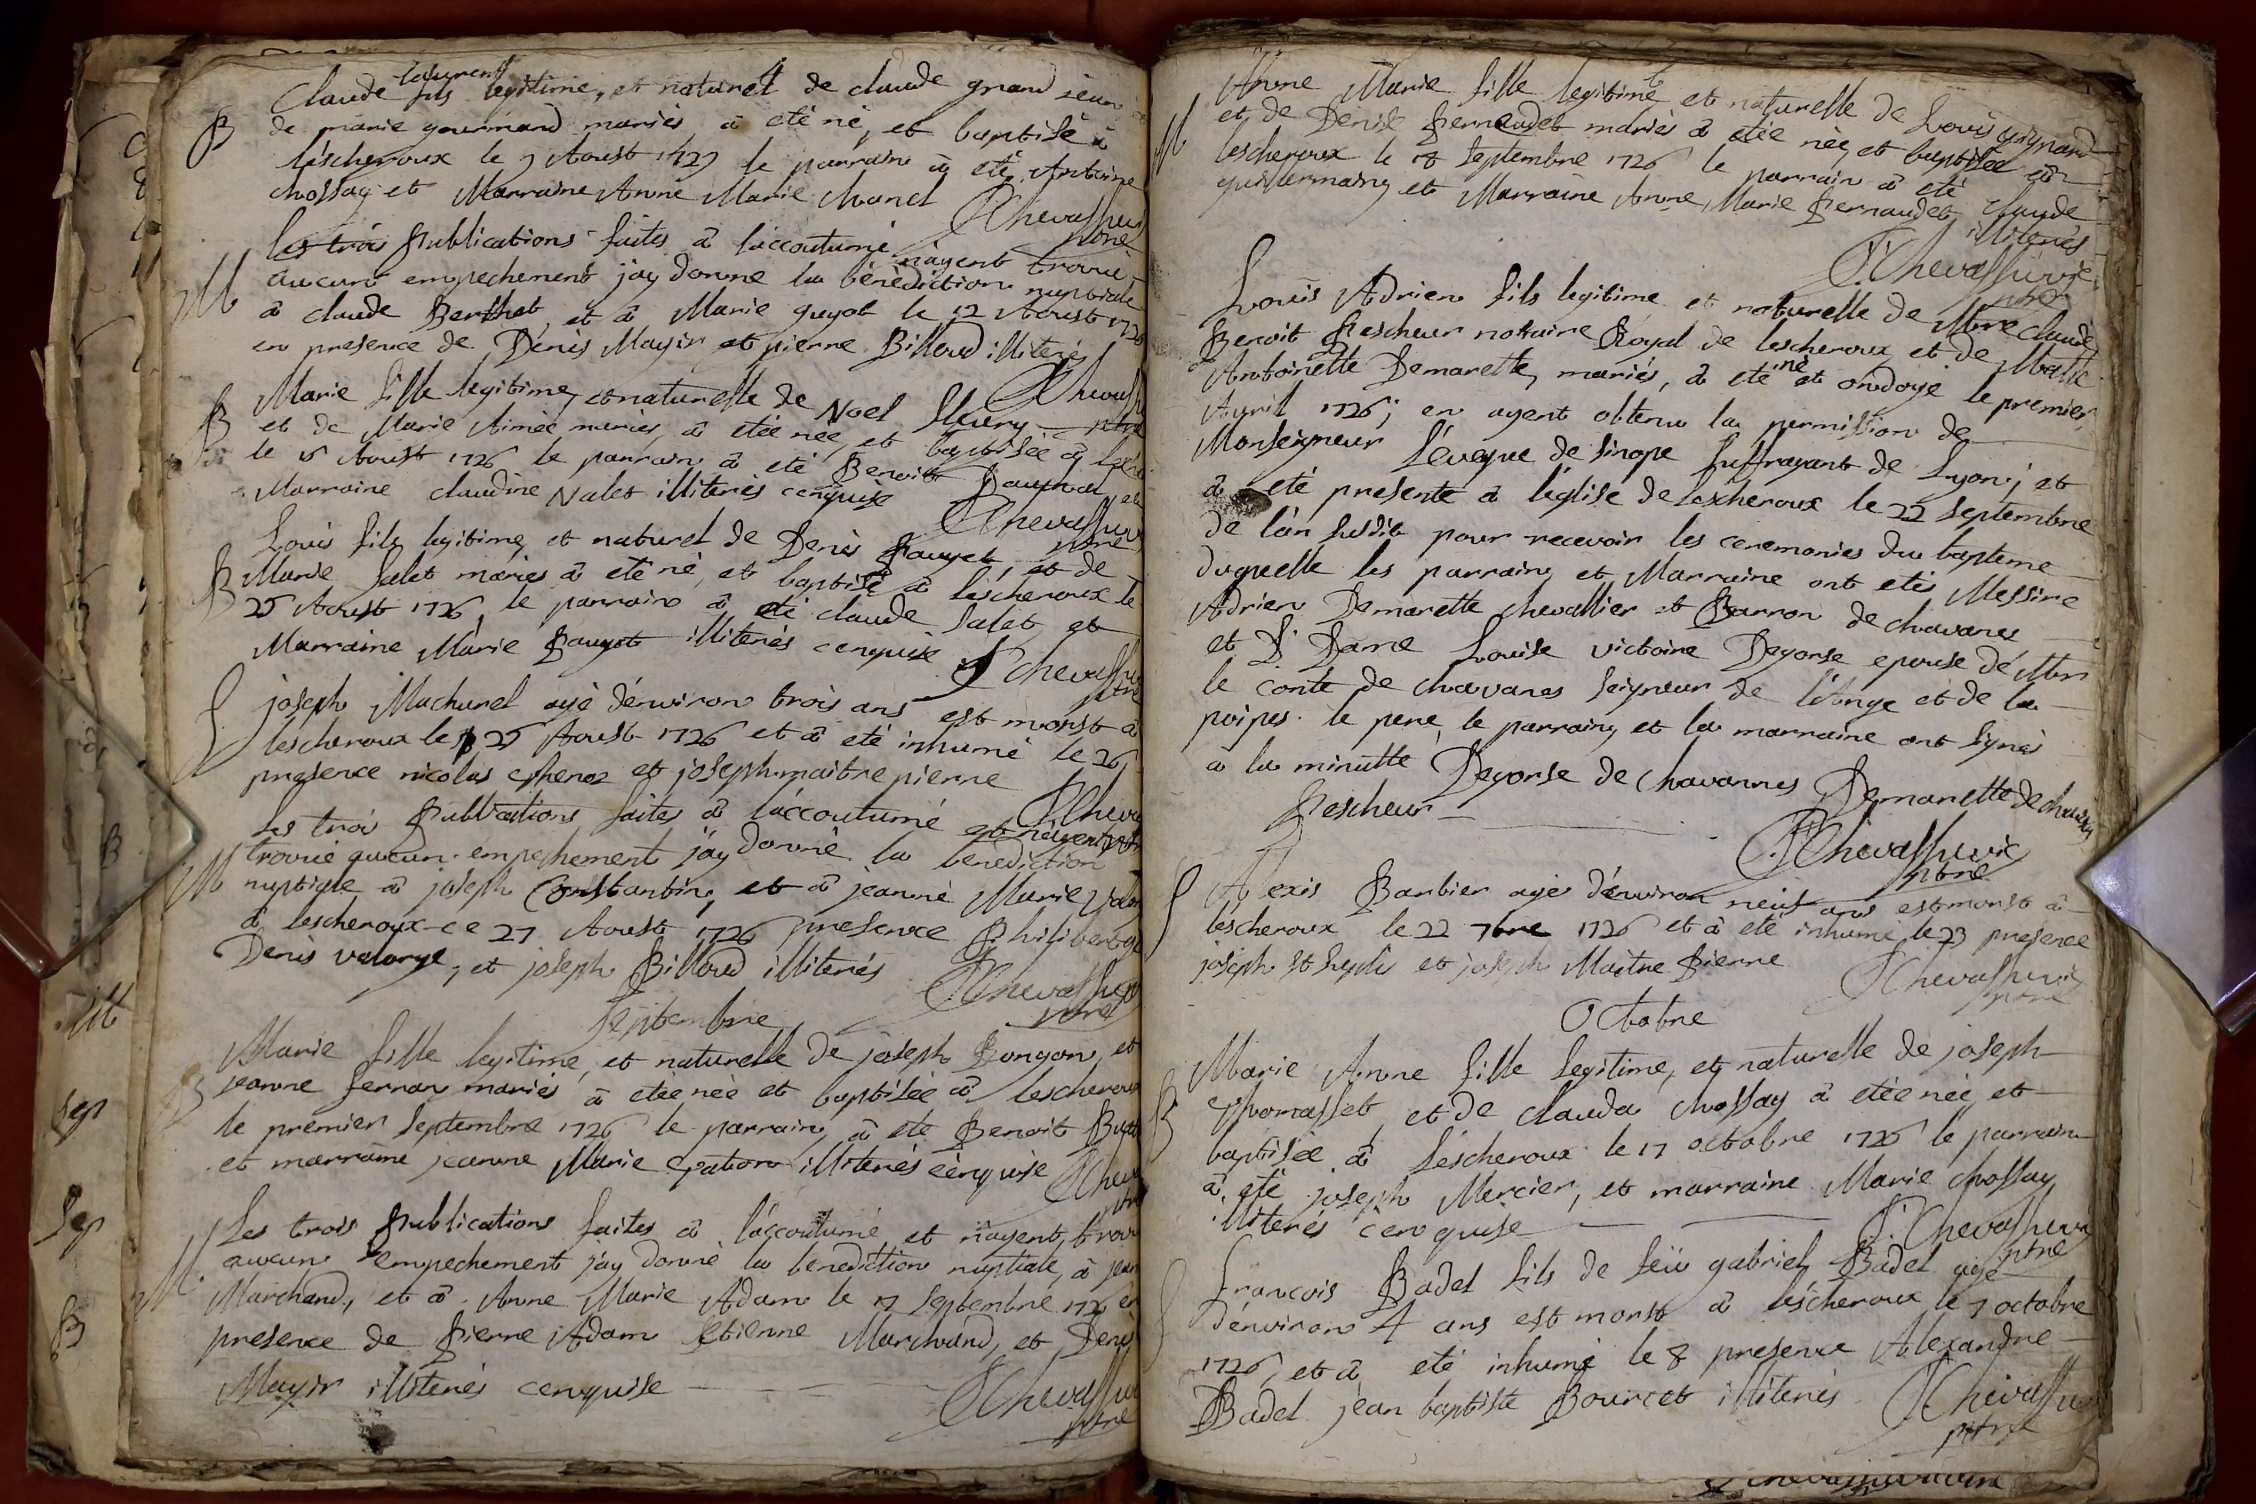 laurent
Claude fils legitime, et naturel de claude grand jean
B de marie gourmand mariés à eté né, et baptisé à
léscheroux le 9 Aoust 1727 le parrain à eté Antoine
chossay et Marraine Anne Marie Manel
Chevassus
ptre
les trois publications faites à láccoutumé nàyent trouvé
M aucun empechement j'ay donné la bénédiction nuptiale
à claude Berthet, et à Marie guyot le 12 Aoust 1726
en presence de Dénis Mayir et pierre Billoud illiterés
Chevass
ptre
Marie fille legitime, et naturelle de Noel fleury
B et de Marie Aimée mariés, à etée née, et baptisée à
le 15 Aoust 1726 le parrain à eté Benoit et
Marraine claudine Nalet illiterés cenquise
Chevassus
ptre
Louis fils legitime et naturel de Denis pauget, et de
B Marie Salet mariés à eté né, et baptisé à lescheroux le
25 Aoust 1726, le parrain à eté claude Salet, et
Marraine Marie pauget illiterés cenquise
Chevassus
ptre
S joseph Machurel agé dénviron trois ans est morst à
lescheroux le 25 Aoust 1726 et à eté inhumé le 26
presence nicolas et joseph maitrepierre
Cheva
Les trois publications faites à láccoutumé et nàyent
trouvé aucun empechement j'ay donné la bénédiction
M nuptiale à joseph Constantin, et à jeanne Marie
à lescheroux ce 27 Aoust 1726 presence philibert
Denis velorge, et joseph Billoud illiterés
Chevassus
ptre
Septembre
Marie fille legitime, et naturelle de joseph et
B jeanne ferran mariés à etée née et baptisée à lescheroux
le premier Septembre 1726 le parrain à eté Benoit
et marraine jeanne Marie illiterés cénquise
Chev
ptre
Les trois publications faites à láccoutumé et nàyent trouvé
aucun empechement j'ay donné la bénédiction nuptiale, à jean
M Marchand, et à Anne Marie Adam le 17 septembre 1726 en
presence de pierre Adam Etienne Marchand, et Denis
Mayir illiterés cenquise
Chevassus
ptre
Anne Marie fille legitime et naturelle de Louis
et de Denise pernaudet mariés à etée née, et baptisée à
lescheroux le 18 Septembre 1726 le parrain à eté claude
et Marraine Anne Marie pernaudet
illiterés
Chevassus
ptre
Louis Adrien fils legitime et naturelle de Mtre claude
Benoit pescheur notaire Royal de lescheroux et de
Antoinette Demarette, mariés, à eté né et ondoyé le premier
Avril 1726; en ayent obtenu la permission de
Monseigneur L'éveque de Sinope Suffragant de Lyon; et
à eté presenté à l'église de lescheroux le 22 septembre
de lán susdit pour recevoir les ceremonies du bapteme
duquelle les parrain, et Marraine ont etés Messire
Adrien Demarette chevallier et Barron de chavanes
et D. Dame Louise victoire Deyorse epouse dé
le conte de chavanes seigneur de l'Ange et de la
poipes. le pere, le parrain, et la marraine ont signés
à la minutte Deyorse de Chavannes Demarette de chavanes
pescheur
Chevassus
ptre
S Alexis Barbier agé dénviron neuf ans est morst à
léscheroux le 22 7bre 1726 et à eté inhumé le 23 presence
joseph et joseph Maitre pierre
Chevassus
ptre
Octobre
Marie Anne fille legitime, et naturelle de joseph
B Thomasset, et de clauda chossay à etée née, et
baptisée à Léscheroux le 17 octobre 1726 le parrain
à eté joseph Mercier, et marraine Marie chossay
illiterés cénquise
Chevassus
ptre
S françois Badel fils de feu gabriel Badel agé
dénviron 4 ans est morst à léscheroux le 7 octobre
1726, et à eté inhumé le 8 presence Alexandre
Badel jean baptiste Bourcet illiterés
Chevassus
ptre